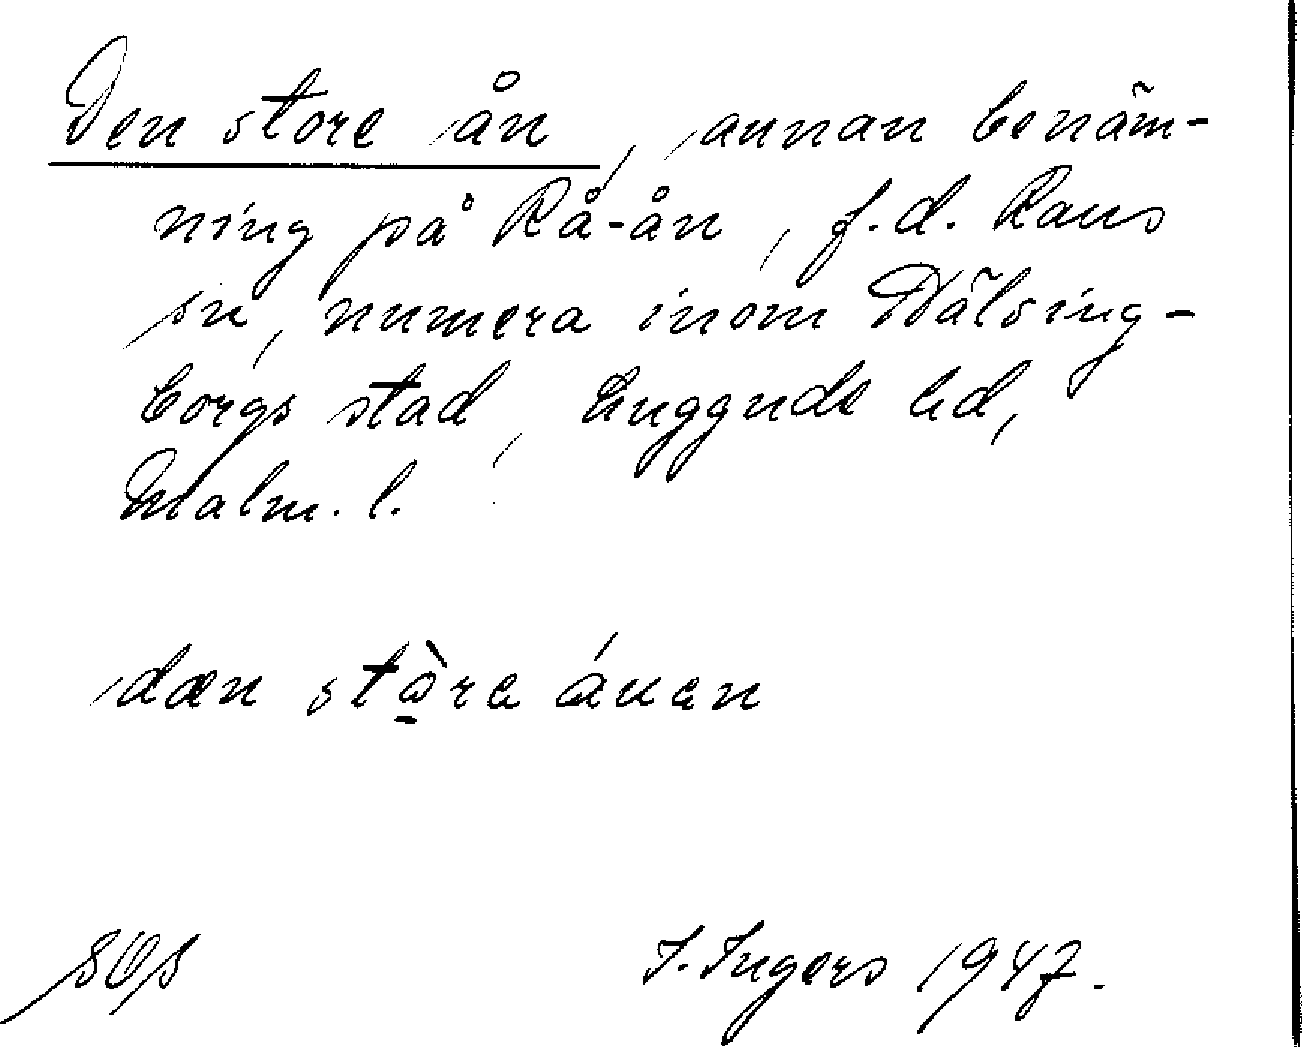 Den store ån, annan benäm-
ning på Rå-ån, f.d. Raus
sn, numera inom Hälsing-
borgs stad, Luggude hd,
Malm. l.
dæn stò̱re áuen
I. Ingers 1947.